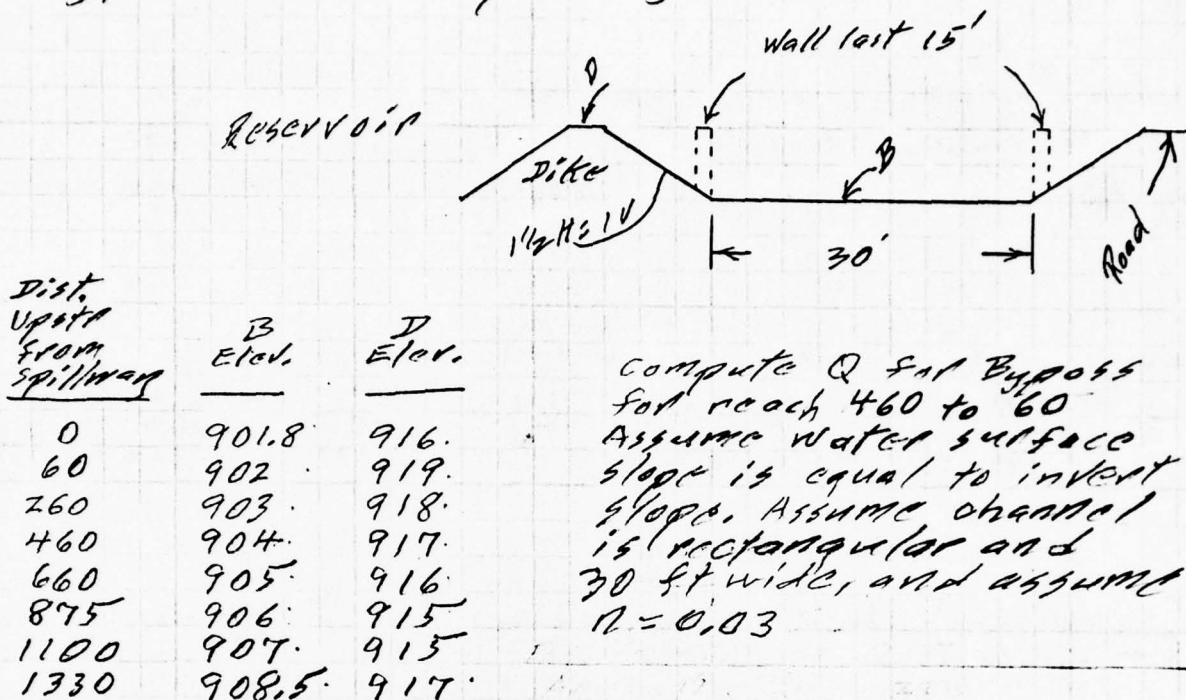 Wall last 15'
D
Reservoir
Dike
B
1 1/2 H = 1V
30'
Road
Dist.
Upstr
from
Spillway
B
Elev.
D
Elev.
0 901.8 916.
60 902 919.
260 903. 918.
460 904. 917.
660 905. 916.
875 906. 915
1100 907. 915
1330 908.5. 917.
Compute Q for Bypass
for reach 460 to 60
Assume water surface
slope is equal to invert
slope. Assume channel
is rectangular and
30 ft wide, and assume
n = 0.03